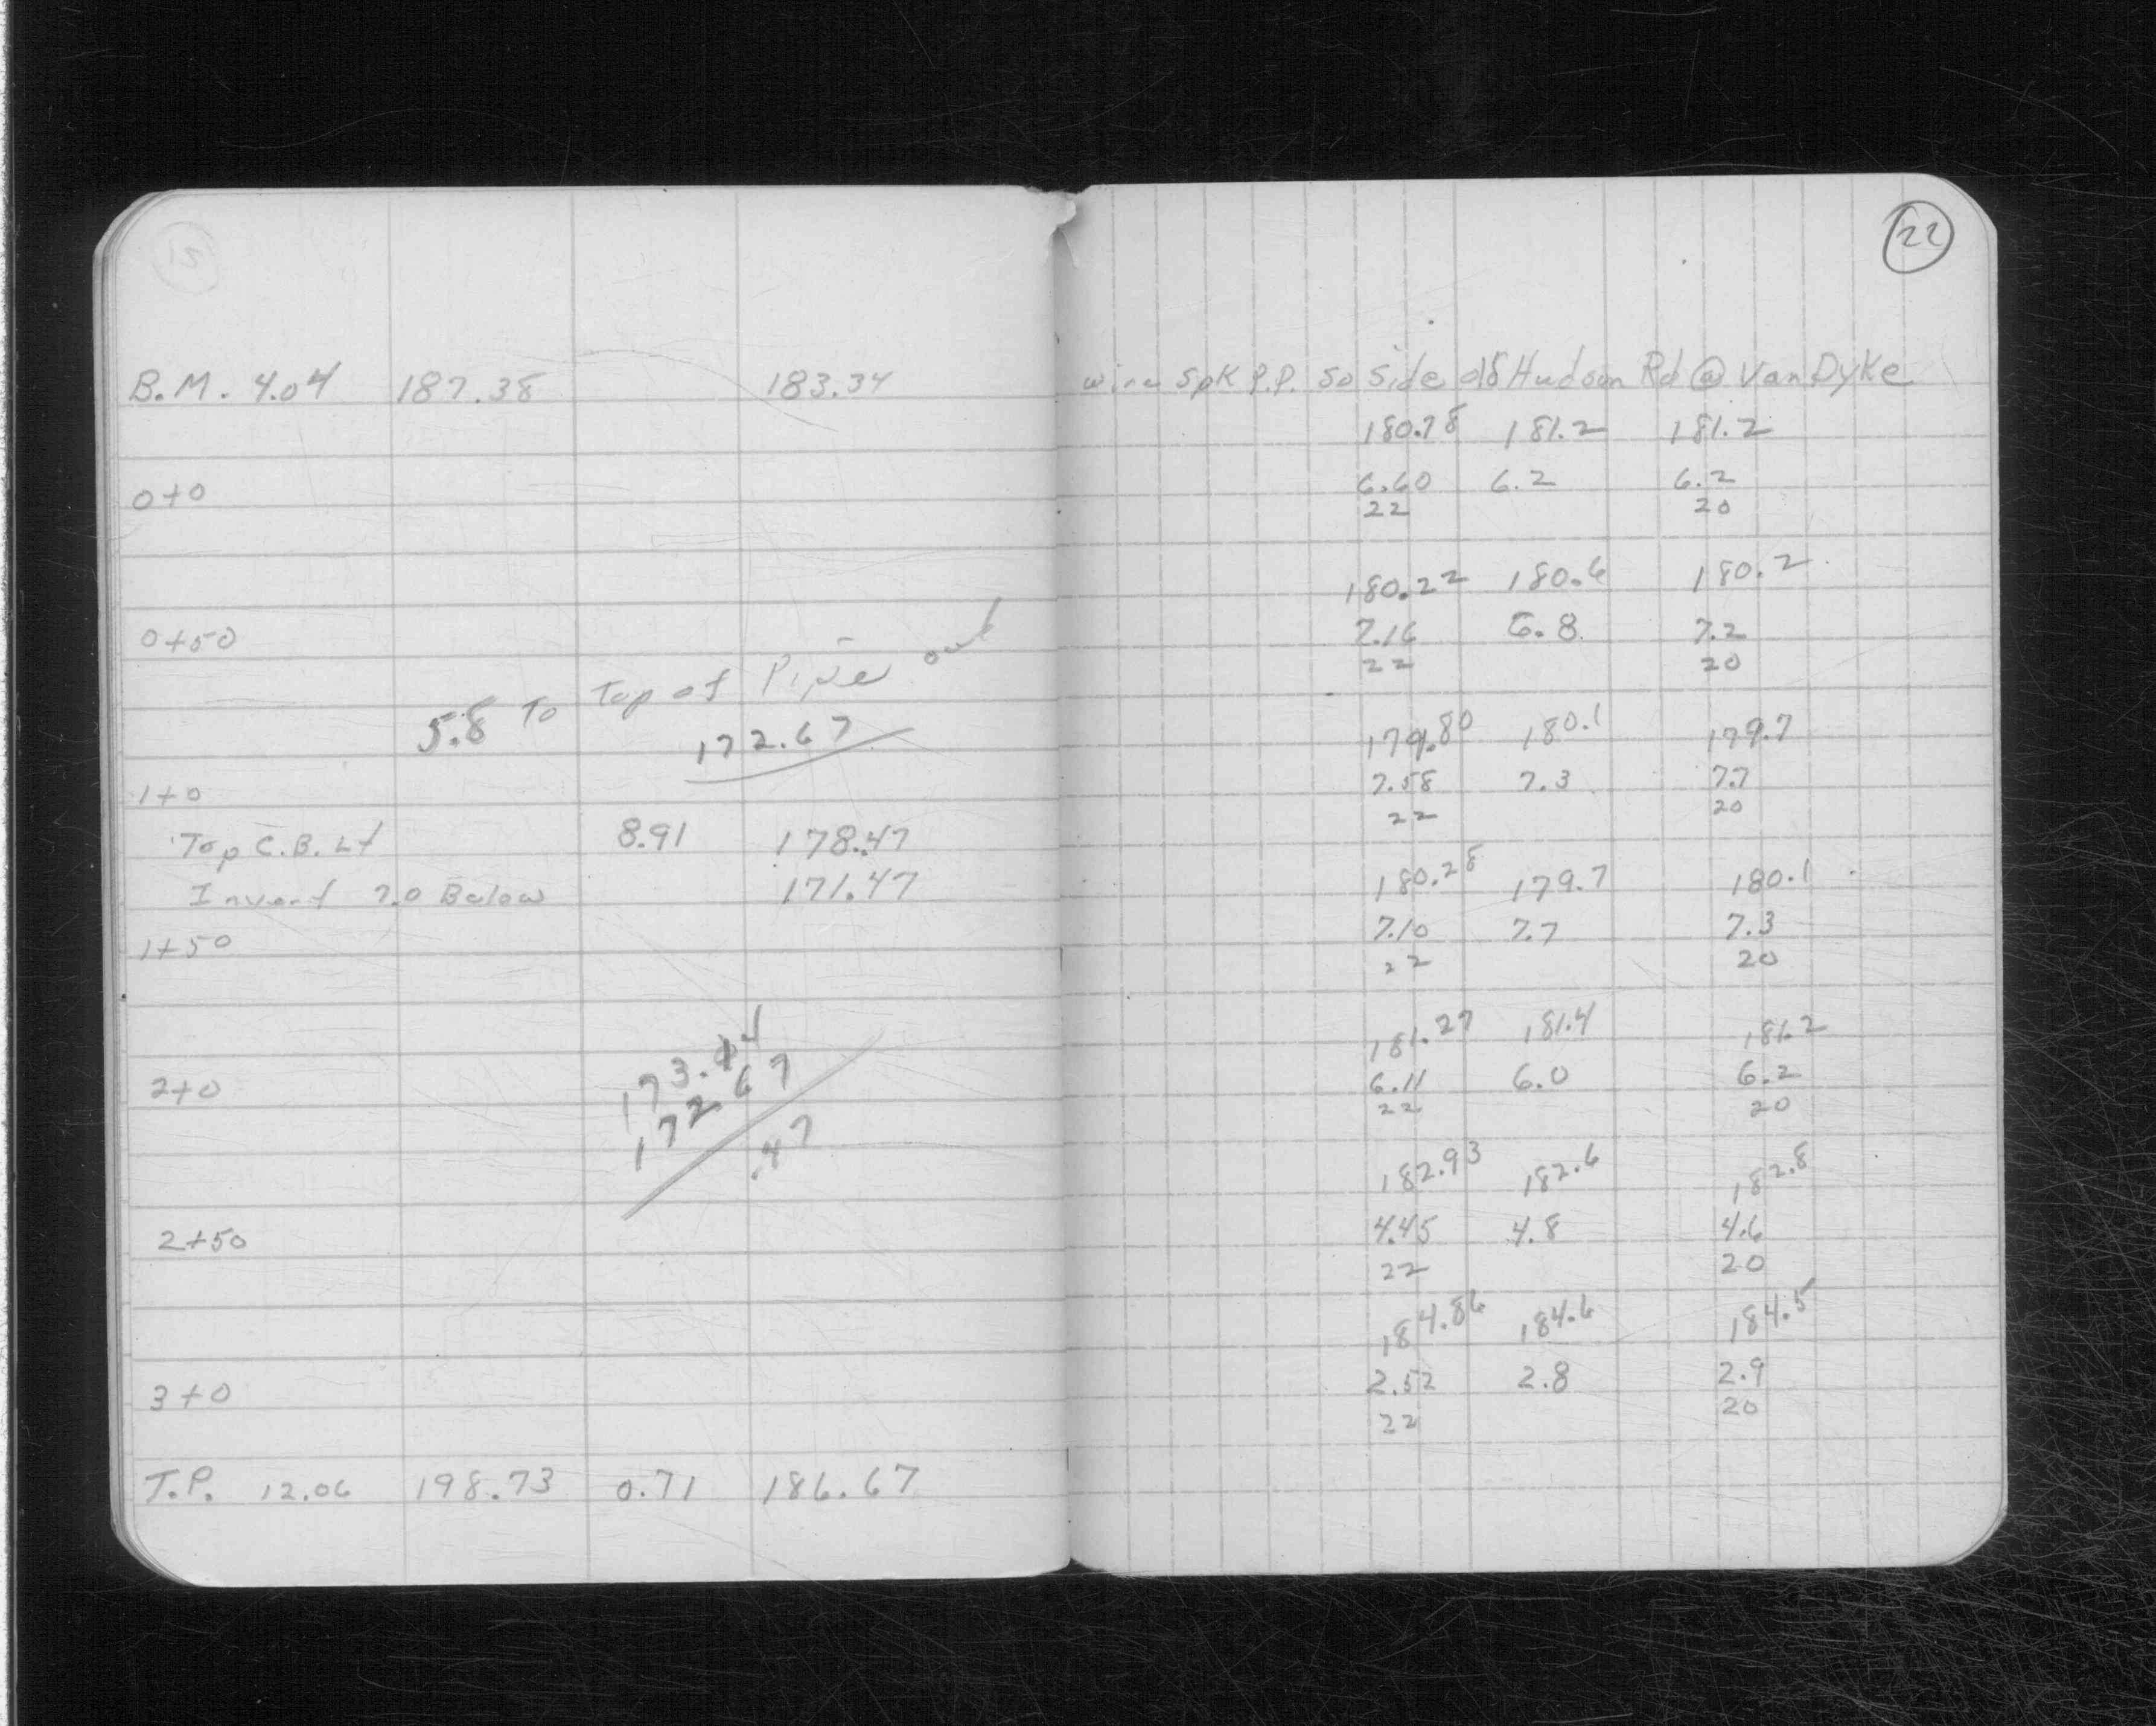 15
B.M. 4.04 187.38 183.34
0+0
0+50
5.8 To Top of Pipe out
172.67
1+0
Top C.B. Lt 8.91 178.47
Invert 7.0 Below 171.47
1+50
173.14
172.67
.47
2+0
2+50
3+0
T.P. 12.06 198.73 0.71 186.67
22
wire Spk P.P. So Side old Hudson Rd @ Van Dyke
180.78 181.2 181.2
6.60 6.2 6.2
22 20
180.22 180.6 180.2
7.16 6.8 7.2
22 20
179.80 180.1 179.7
7.58 7.3 7.7
22 20
180.28 179.7 180.1
7.10 7.7 7.3
22 20
181.27 181.4 181.2
6.11 6.0 6.2
22 20
182.93 182.6 182.8
4.45 4.8 4.6
22 20
184.86 184.6 184.5
2.52 2.8 2.9
22 20